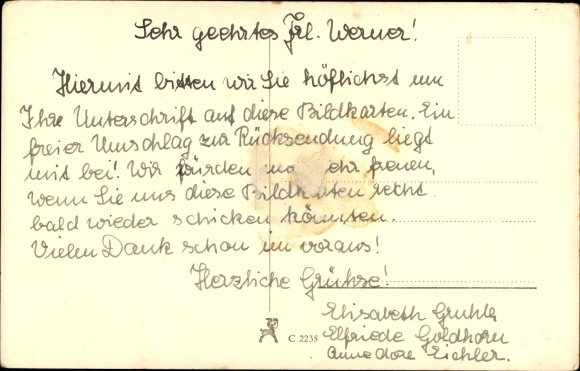 Sehr geehrtes Frl. Werner!
Hiermit bitten wir Sie höflichst um
Ihre Unterschrift auf diese Bildkarten. Ein
freier Umschlag zur Rücksendung liegt
mit bei! Wir würden uns sehr freuen,
wenn Sie uns diese Bildkarten recht
bald wieder schicken könnten.
Vielen Dank schon im voraus!
Herzliche Grühse!
Elisabeth
Elfriede Goldhorn
Annedore Eichler.
C 2235